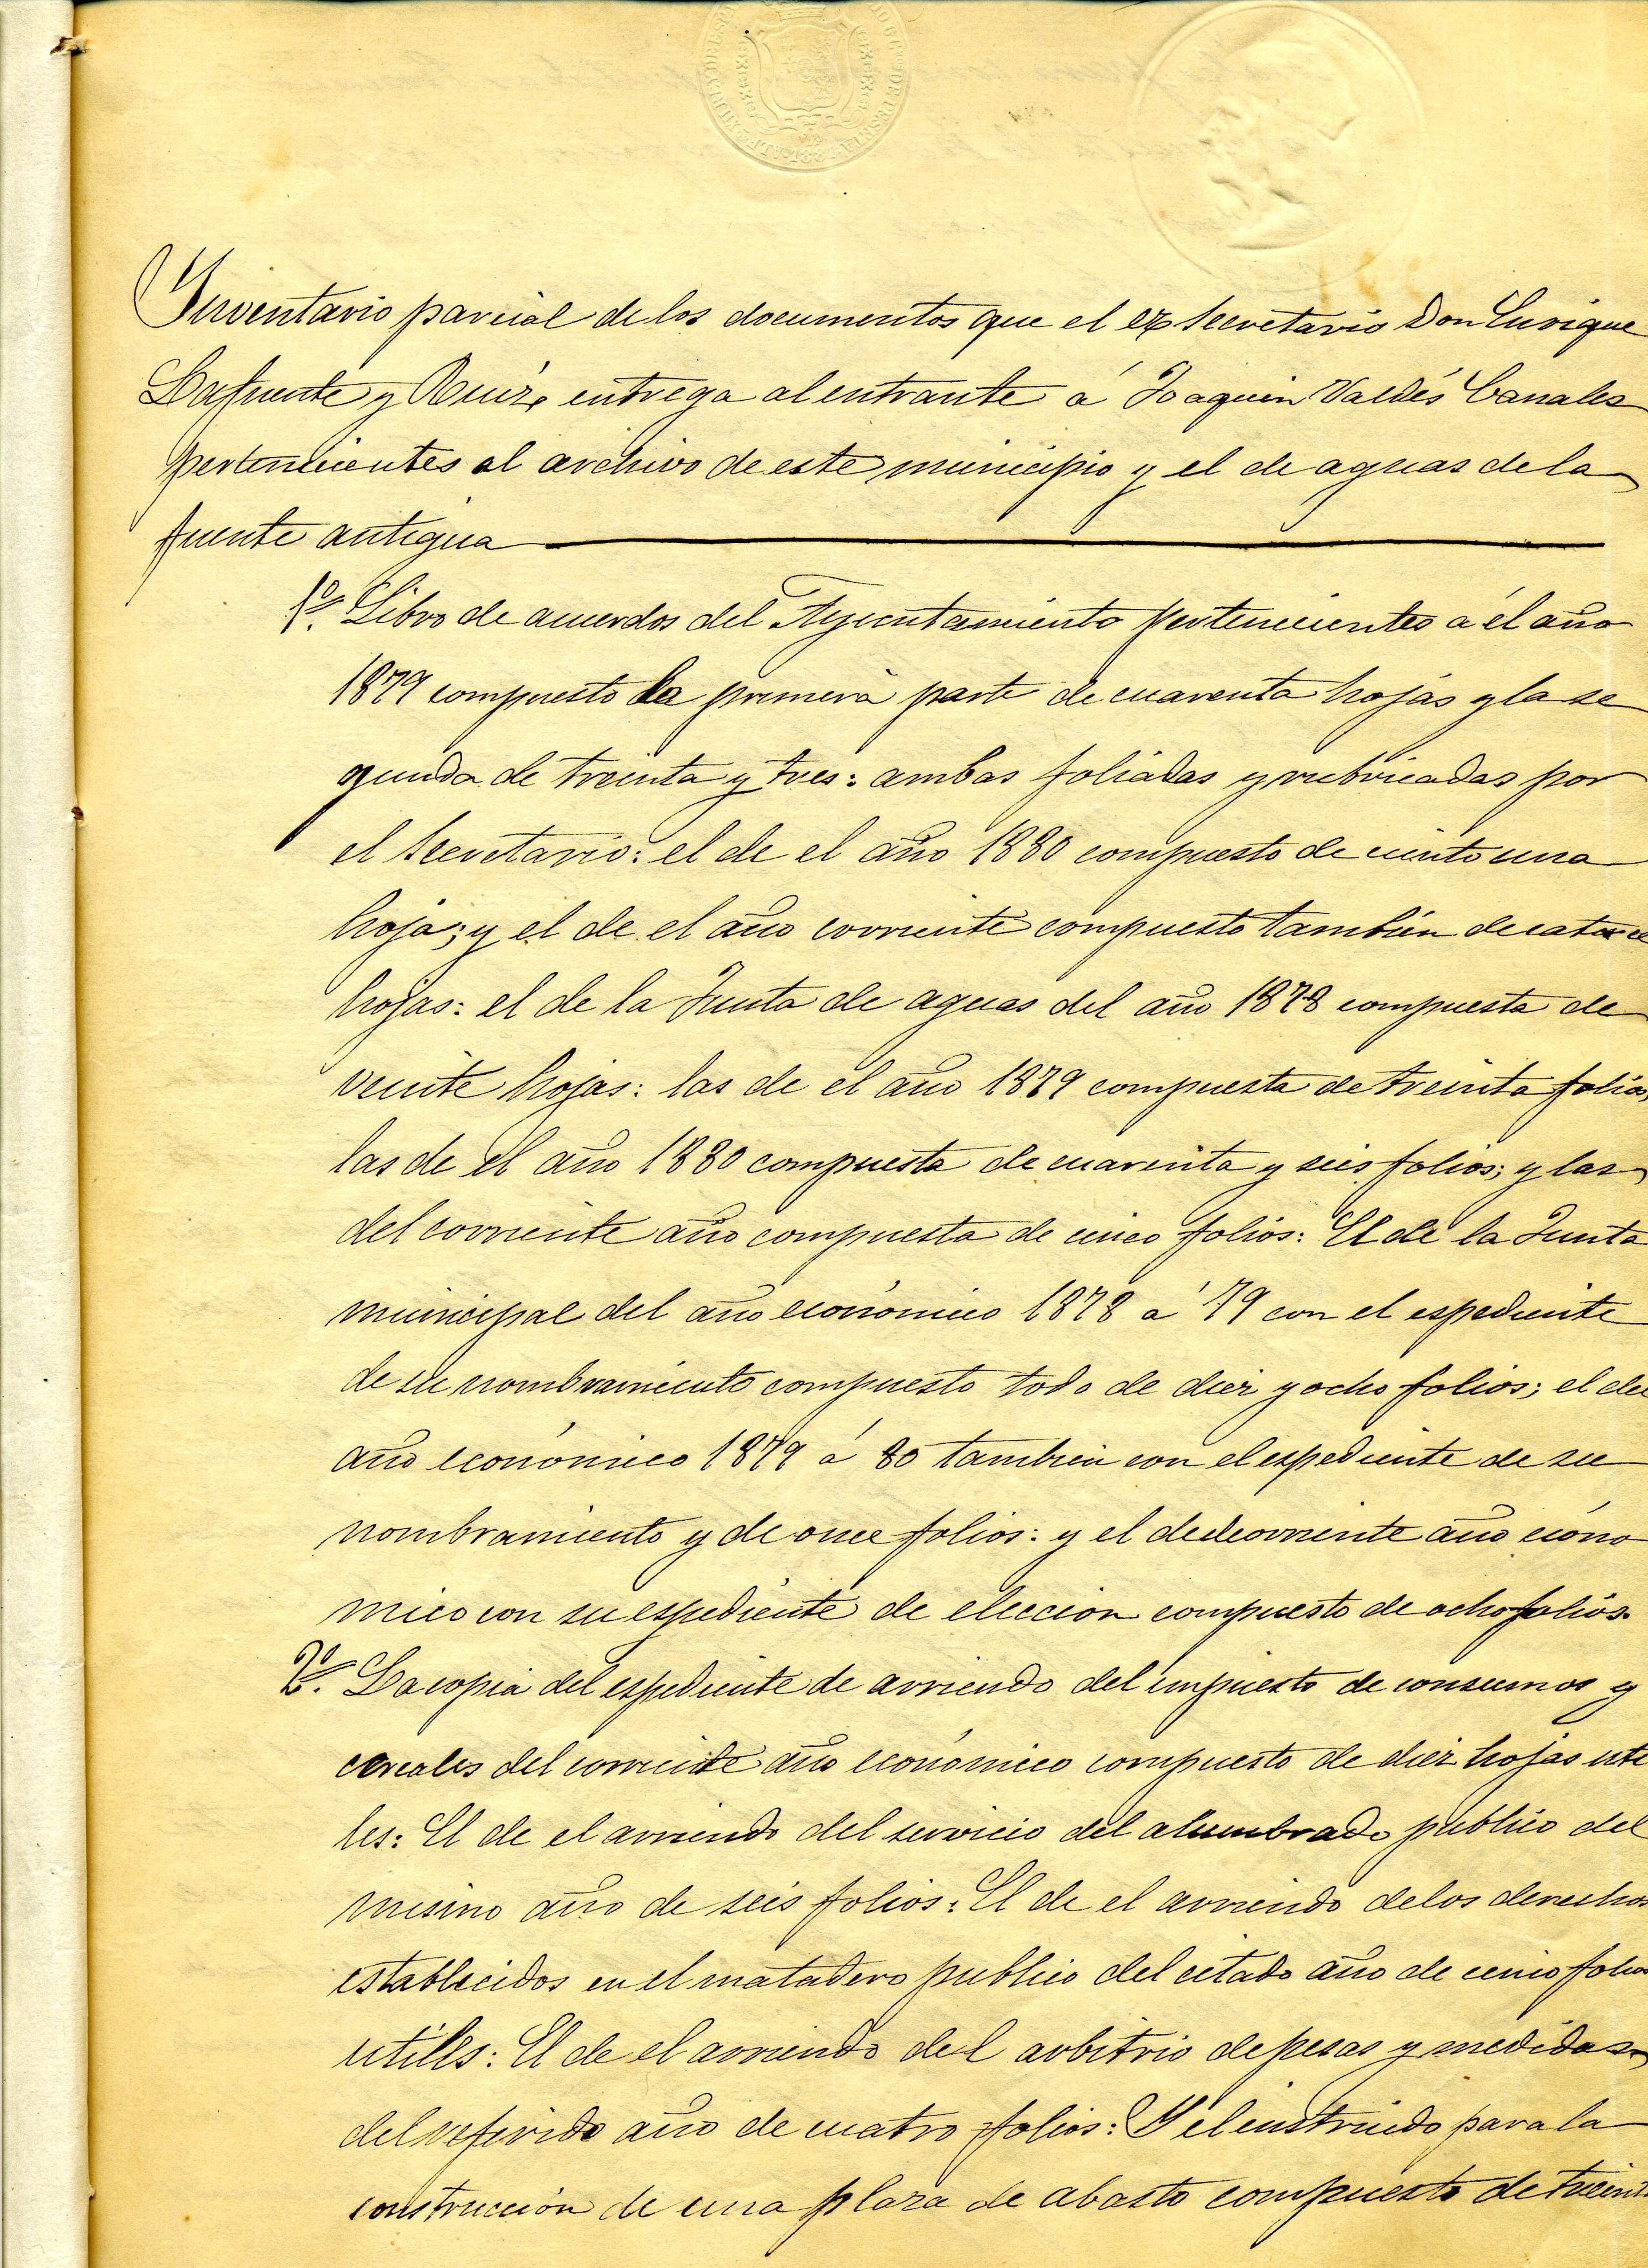 Inventario parcial de los documentos que el ex Secretario Don Enrique
Lafuente y Ruiz, entrega al entrante á Joaquin Valdés Canales
pertenecientes al archivo de este municipio y el de aguas de la
fuente antigua
1º. Libro de acuerdos del Ayuntamiento pertenecientes á el año
1879 compuesto la primera parte de cuarenta hojas y la se
gunda de treinta y tres: ambas foliadas y rubricadas por
el Secretario: el de el año 1880 compuesto de ciento una
hoja; y el de el año corriente compuesto tambien de catorce
hojas: el de la Junta de aguas del año 1878 compuesta de
veinte hojas: las de el año 1879 compuesta de treinta folios,
las de el año 1880 compuesta de cuarenta y seis folios; y las
del corriente año compuesta de cinco folios: El de la Junta
municipal del año económico 1878 á 79 con el espediente
de su nombramiento compuesto todo de diez y ocho folios; el del
año económico 1879 á 80 tambien con el espediente de su
nombramiento y de once folios: y el del corriente año econo
mico con su espediente de eleccion compuesto de ocho folios.
2º. La copia del espediente de arriendo del impuesto de consumos y
cereales del corriente año económico compuesto de diez hojas uti
les: El de el arriendo del servicio del alumbrado publico del
mismo año de seis folios: El de el arriendo de los derechos
establecidos en el matadero publico del citado año de cinco folios
utiles: El de el arriendo del arbitrio de pesas y medidas
del referido año de cuatro folios: Y el instruido para la
construccion de una plaza de abasto compuesto de treinta